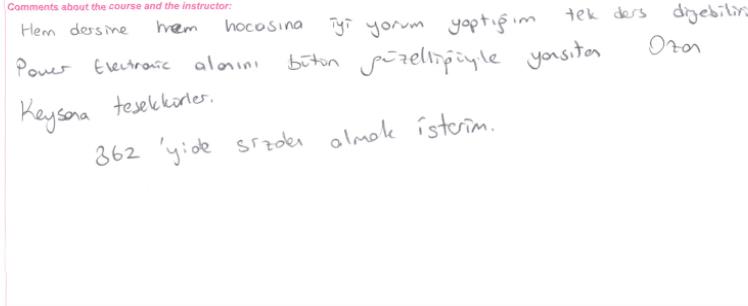 Comments about the course and the instructor:
Hem dersine hem hocasına iyi yorum yaptığım tek ders diyebilirim
Power Electronic alanını bütün güzelliğiyle yansıtan Ozan
Keysana teşekkürler.
362 'yide sizden almak isterim.